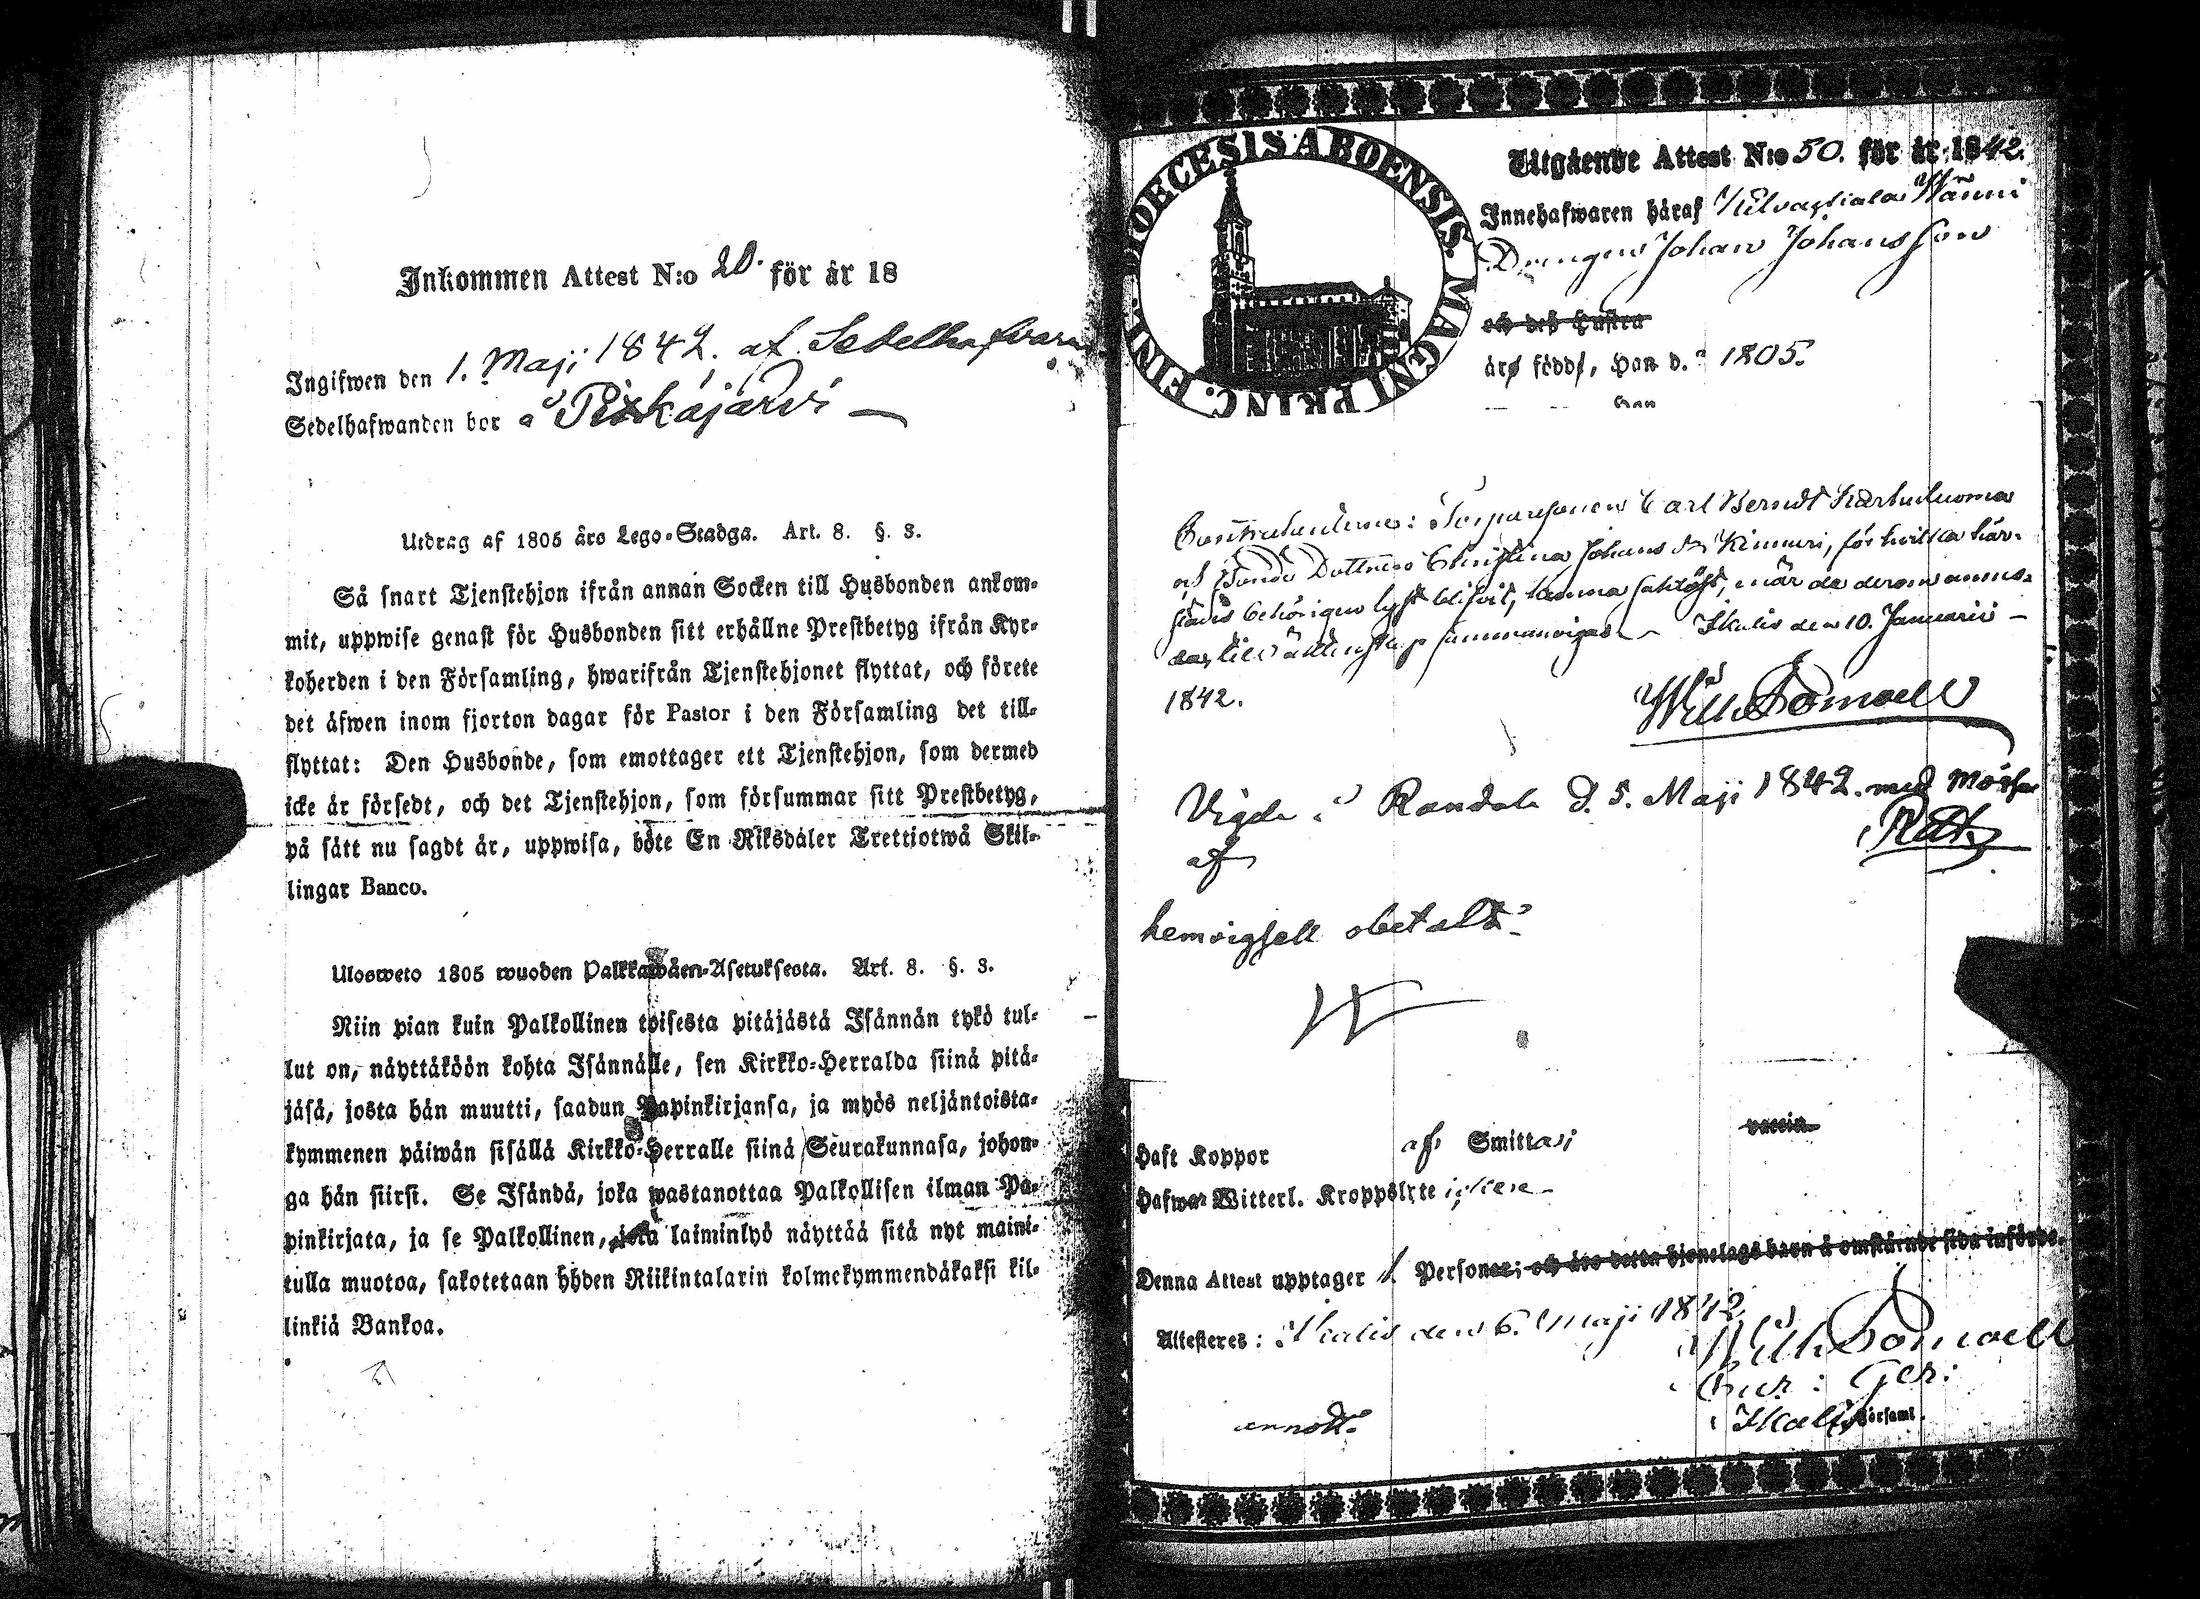 Inkommen Attest N:o 20. för år 18
Ingifwen den 1. Maji 1842. af Sedelhafvaren
Sedelhafwanden bor å Pitkäjärvi —
Utdrag af 1805 års Lego-Stadga. Art. 8. §. 3.
Så snart Tjenstehjon ifrån annan Socken till Husbonden ankom-
mit, uppwise genast för Husbonden sitt erhållne Prestbetyg ifrån Kyr-
koherden i den Församling, hwarifrån Tjenstehjonet flyttat, och förete
det äfwen inom fjorton dagar för Pastor i den Församling det till-
flyttat: Den Husbonde, som emottager ett Tjenstehjon, som dermed
icke är försedt, och det Tjenstehjon, som försummar sitt Prestbetyg,
på sätt nu sagdt är, uppwisa, böte En Riksdaler Trettiotwå Skil-
lingar Banco.
Ulosweto 1805 wuoden Palkkawäen-Asetuksesta. Art. 8. §. 3.
Niin pian kuin Palkollinen toisesta pitäjästä Isännän tykö tul-
lut on, näyttäköön kohta Isännälle, sen Kirkko-Herralda siinä pitä-
jäsä, josta hän muutti, saadun Papinkirjansa, ja myös neljäntoista-
kymmenen päiwän sisällä Kirkko-Herralle siinä Seurakunnasa, johon-
ga hän siirsi. Se Isändä, joka wastanottaa Palkollisen ilman Pa-
pinkirjata, ja se Palkollinen, joka laiminlyö näyttää sitä nyt maini-
tulla muotoa, sakotetaan yhden Riikintalarin kolmekymmendäkaksi kil-
linkiä Bankoa.
DIOECESIS ABOENSIS. MAGNI PRINC. FINL.
Utgående Attest N:o 50. för år 1842.
Innehafwaren häraf Kilvakkala Wänni
Drengen Johan Johansson
och des Hustru
äro födde, Han d. 1805.
Hon
Contrahenterne: Carl Berndt Karhuluoma
och Bonde Dottren Christina Johans Dr Kinnari, för hvilka här-
städes behörigen lyst blifvit, kunna när de derom anmä-
la sig, till äktenskap sammanvigas — Ikalis den 10. Januarii —
1842.
Wilh Domoell
Vigde i Randala d. 5. Maji 1842. med
af
hemvigsell obetald
Haft Koppor af Smittan vaccin.
Hafwer Witterl. Kroppslyte icke
Denna Attest upptager 1. Personer; och äro detta hjonelags barn å omstående sida införde.
Attesteres: Ikalis den 6. Maji 1842
Wilh Domoell
Ikalis Församl.
annot.